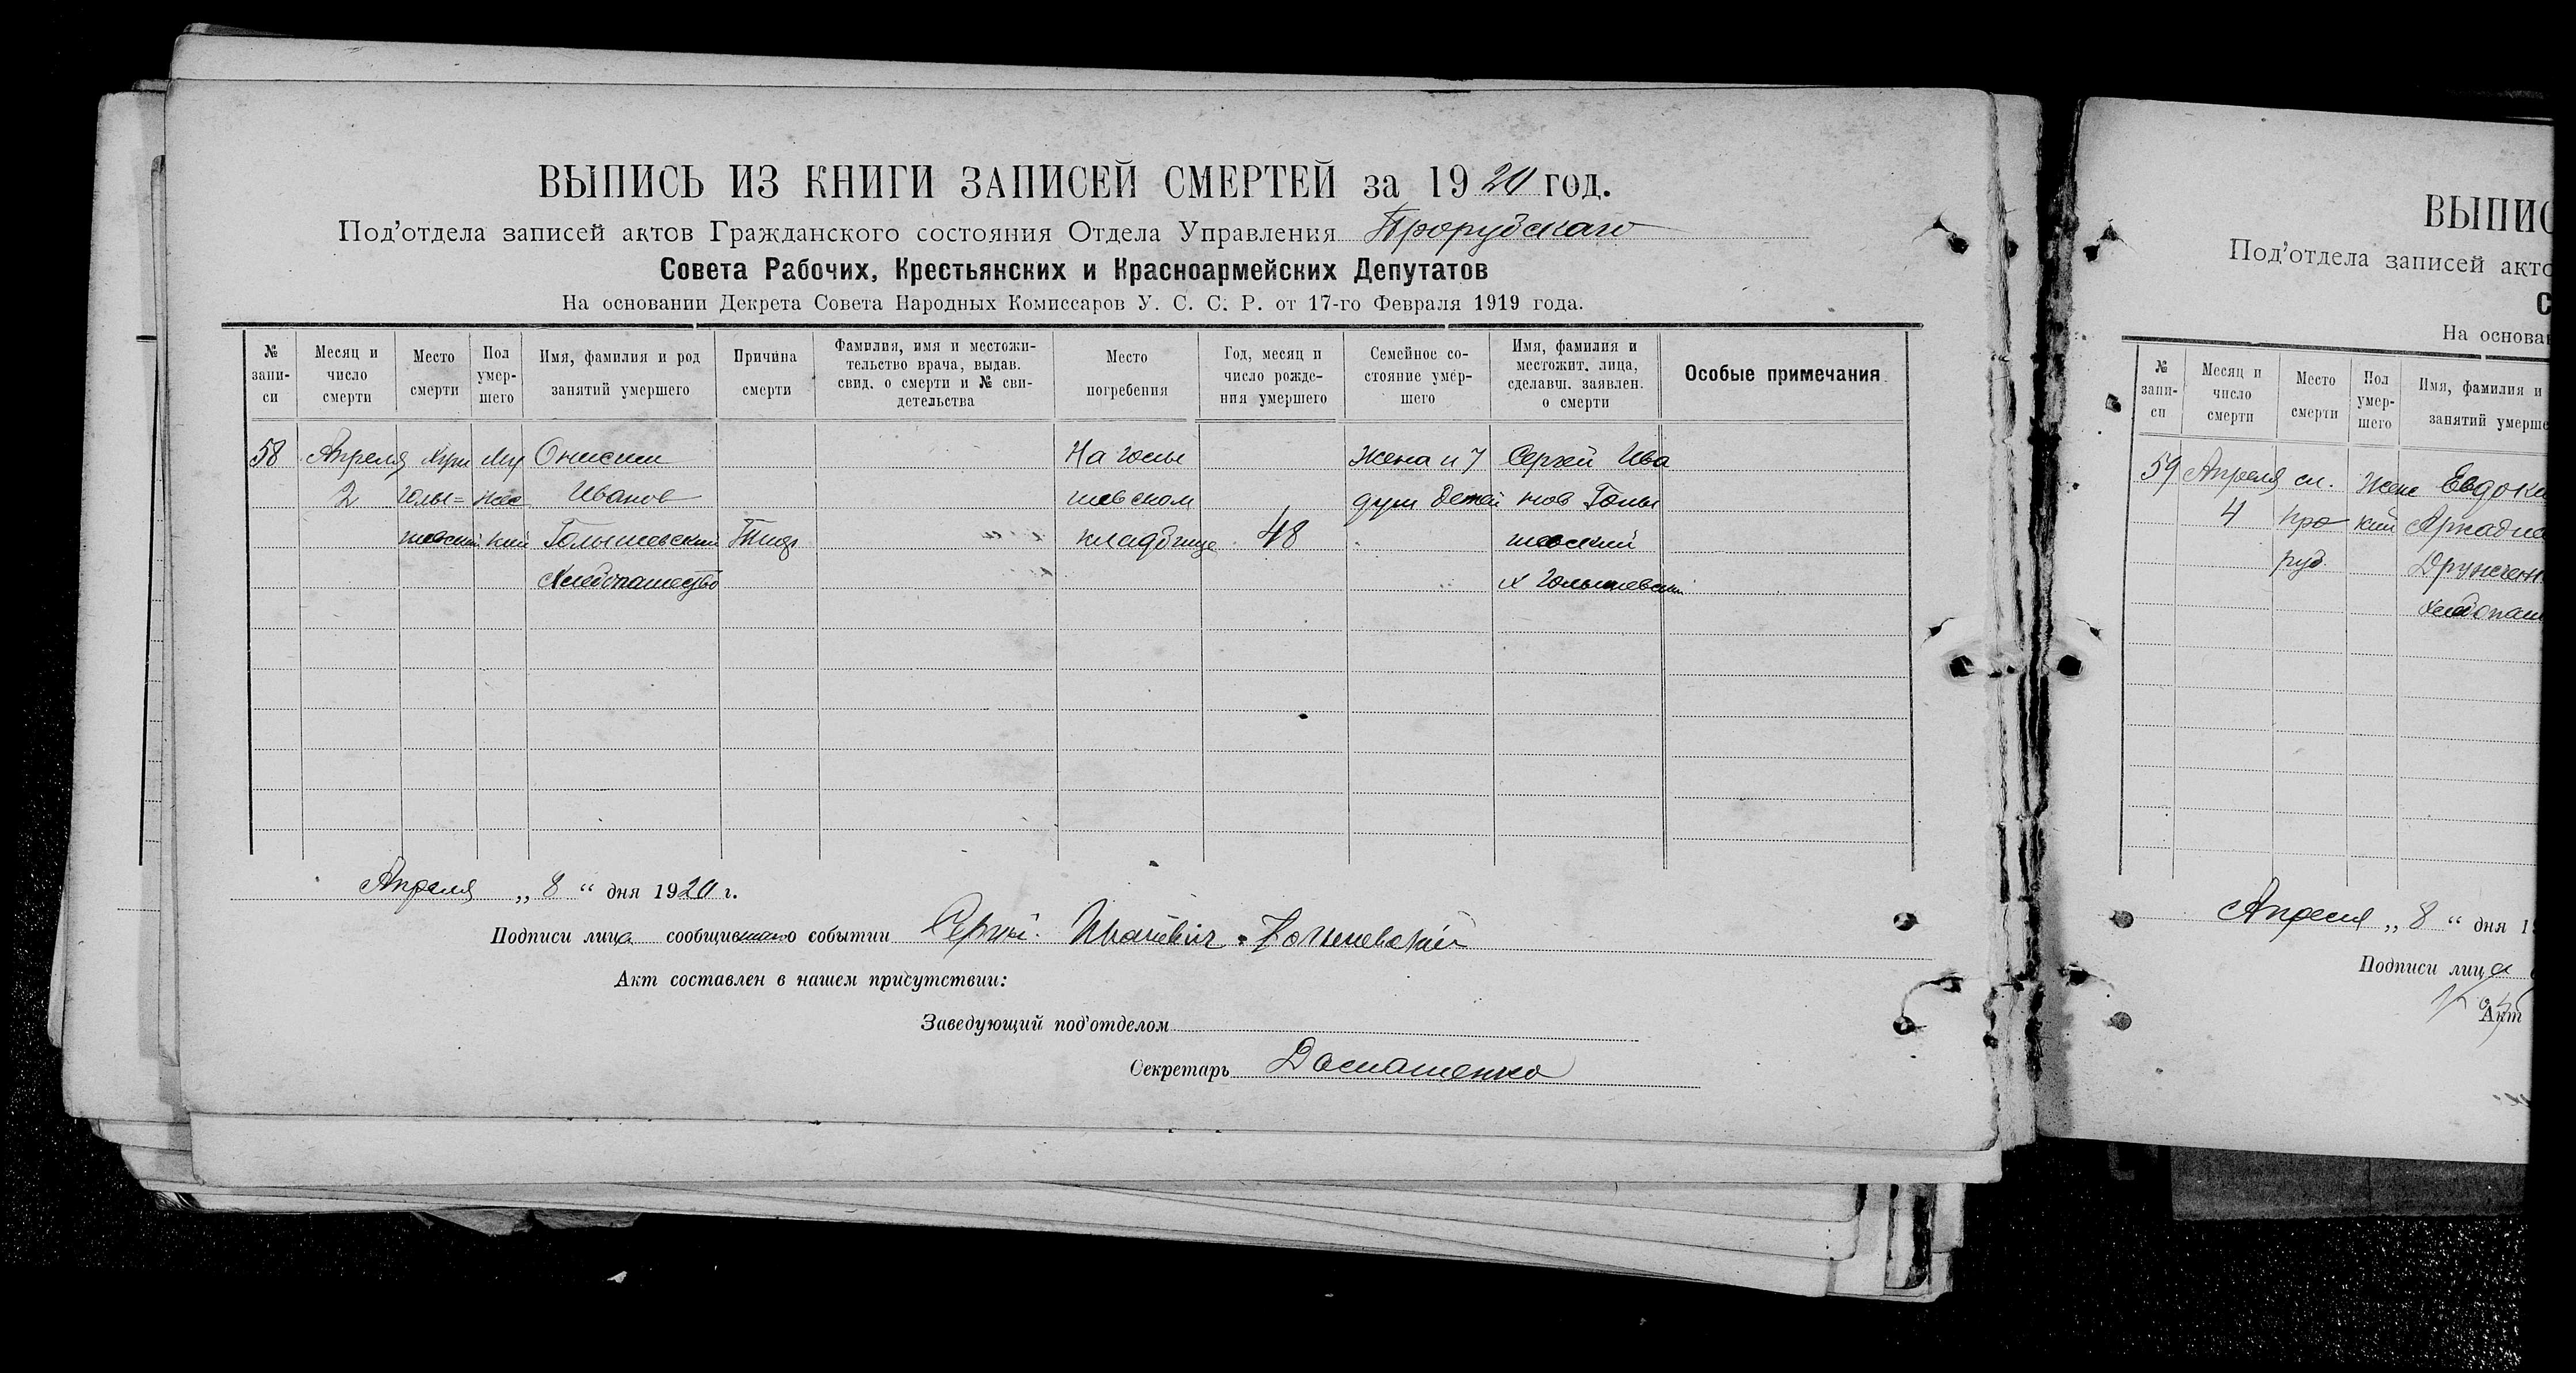 ВЫПИСЬ ИЗ КНИГИ ЗАПИСЕЙ СМЕРТЕЙ за 1920 год.
Под'отдела записей актов Гражданского состояния Отдела Управления Прорубского
Совета Рабочих, Крестьянских и Красноармейских Депутатов
На основании Декрета Совета Народных Комиссаров У. С. С. Р. от 17-го Февраля 1919 года.
№ запи- си
Месяц и число смерти
Место смерти
Пол умер- шего
Имя, фамилия и род занятий умершего
Причина смерти
Фамилия, имя и местожи- тельство врача, выдав. свид. о смерти и № сви- детельства
Место погребения
Год, месяц и число рожде- ния умершего
Семейное со- стояние умер- шего
Имя, фамилия и местожит. лица, сделавш. заявлен. о смерти
Особые примечания
58 Апреля Му Онисим На Голы Жена и 7 Сергей Ива
2 Голы= жес Иванов шевском душ детей нов Голы
шевский кий Голышевский Тиф кладбище 48 шевский
Хлебопашество х Голышевский
Апреля „ 8 “ дня 1920 г.
Подписи лица сообщившаго о событии Сергей Иванович Голышевский
Акт составлен в нашем присутствии:
Заведующий под'отделом
Секретарь Домашенко
ВЫПИС
Под'отдела записей акто
С
На основан
№ запи- си
Месяц и число смерти
Место смерти
Пол умер- шего
Имя, фамилия и занятий умерше
59 Апреля сл. Жен Евдоки
4 Про кий Аркадие
руб. Дружчен
Хлебопаш
Апреля „ 8 “ дня 19
Подписи лица
Акт